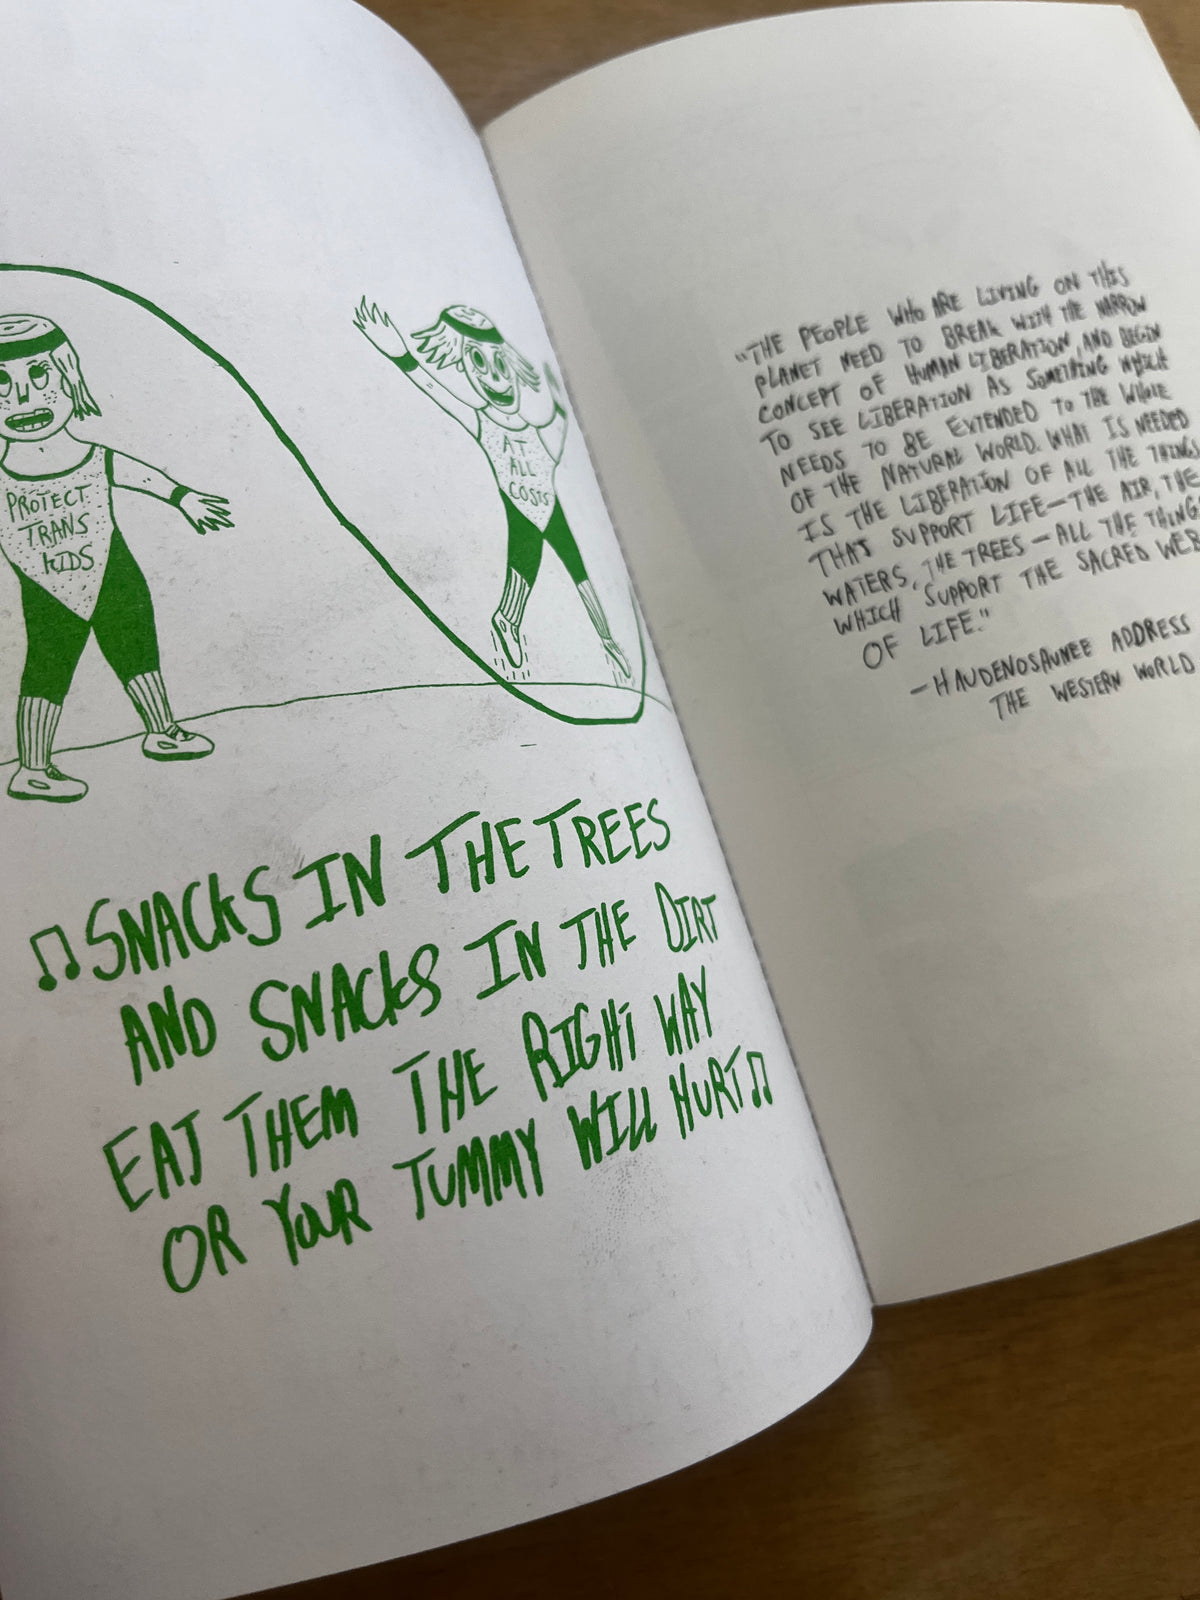 PROTECT
TRANS
KIDS
AT
ALL
COSTS
♫ SNACKS IN THE TREES
AND SNACKS IN THE DIRT
EAT THEM THE RIGHT WAY
OR YOUR TUMMY WILL HURT ♫
"THE PEOPLE WHO ARE LIVING ON THIS
PLANET NEED TO BREAK WITH THE NARROW
CONCEPT OF HUMAN LIBERATION, AND BEGIN
TO SEE LIBERATION AS SOMETHING WHICH
NEEDS TO BE EXTENDED TO THE WHOLE
OF THE NATURAL WORLD. WHAT IS NEEDED
IS THE LIBERATION OF ALL THE THINGS
THAT SUPPORT LIFE—THE AIR, THE
WATERS, THE TREES—ALL THE THINGS
WHICH SUPPORT THE SACRED WEB
OF LIFE."
—HAUDENOSAUNEE ADDRESS
THE WESTERN WORLD